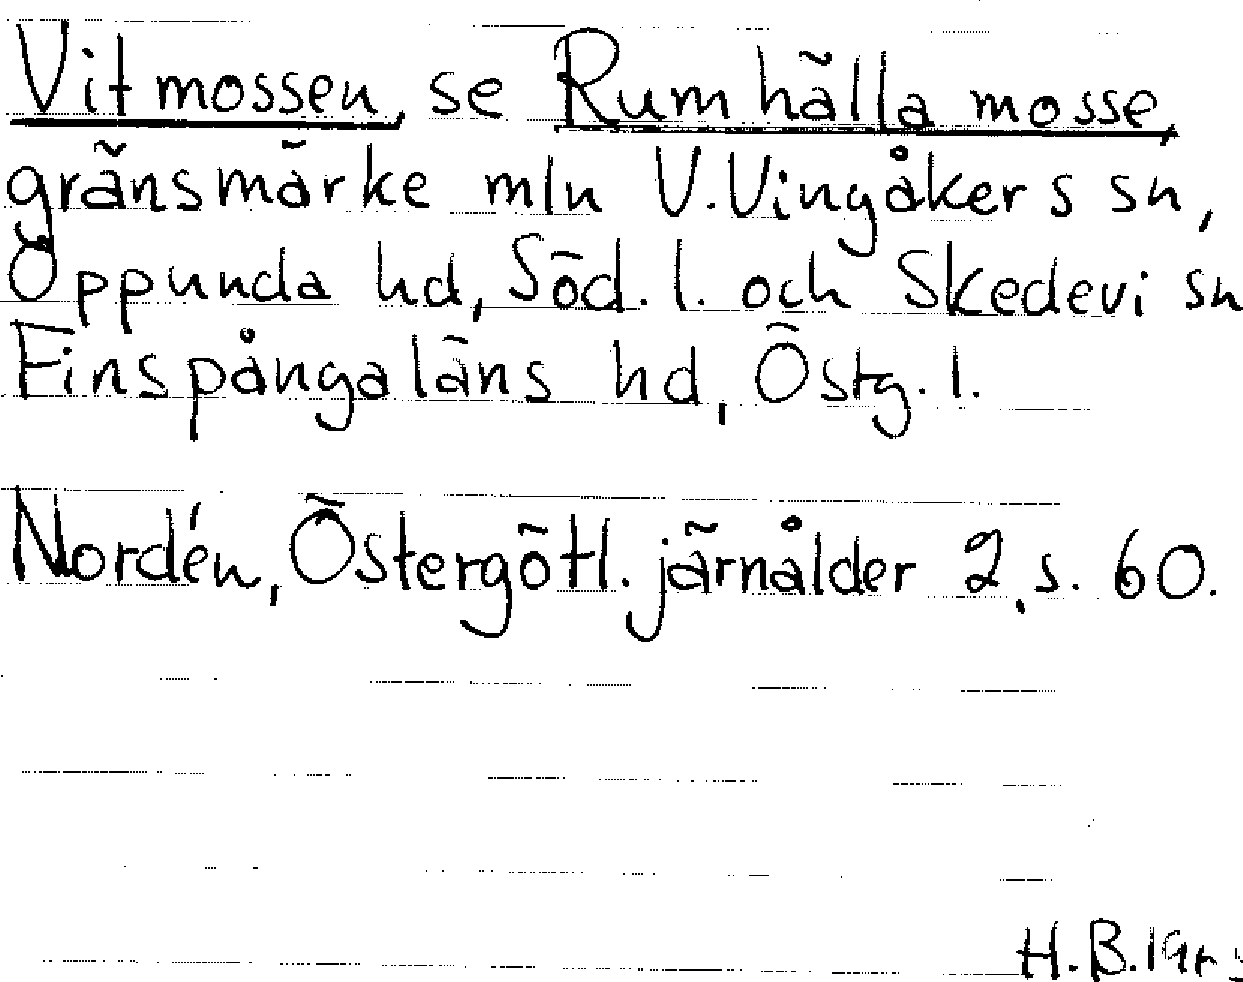 Vitmossen, se Rumhälla mosse,
gränsmärke mln V.Vingåkers sn,
Oppunda hd, Söd. l. och Skedevi sn
Finspångaläns hd, Östg. l.
Nordén, Östergötl. järnålder 2, s. 60.
H.B.